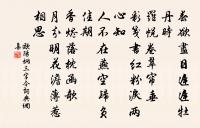 春欲盡日遲遲牡
丹時
羅幌卷翠簾垂
彩箋書紅粉淚兩
心知
人不在燕空歸負
佳期
香燼落枕函欹
月分明花澹薄惹
相思
歐陽炯三字令詞典網
集